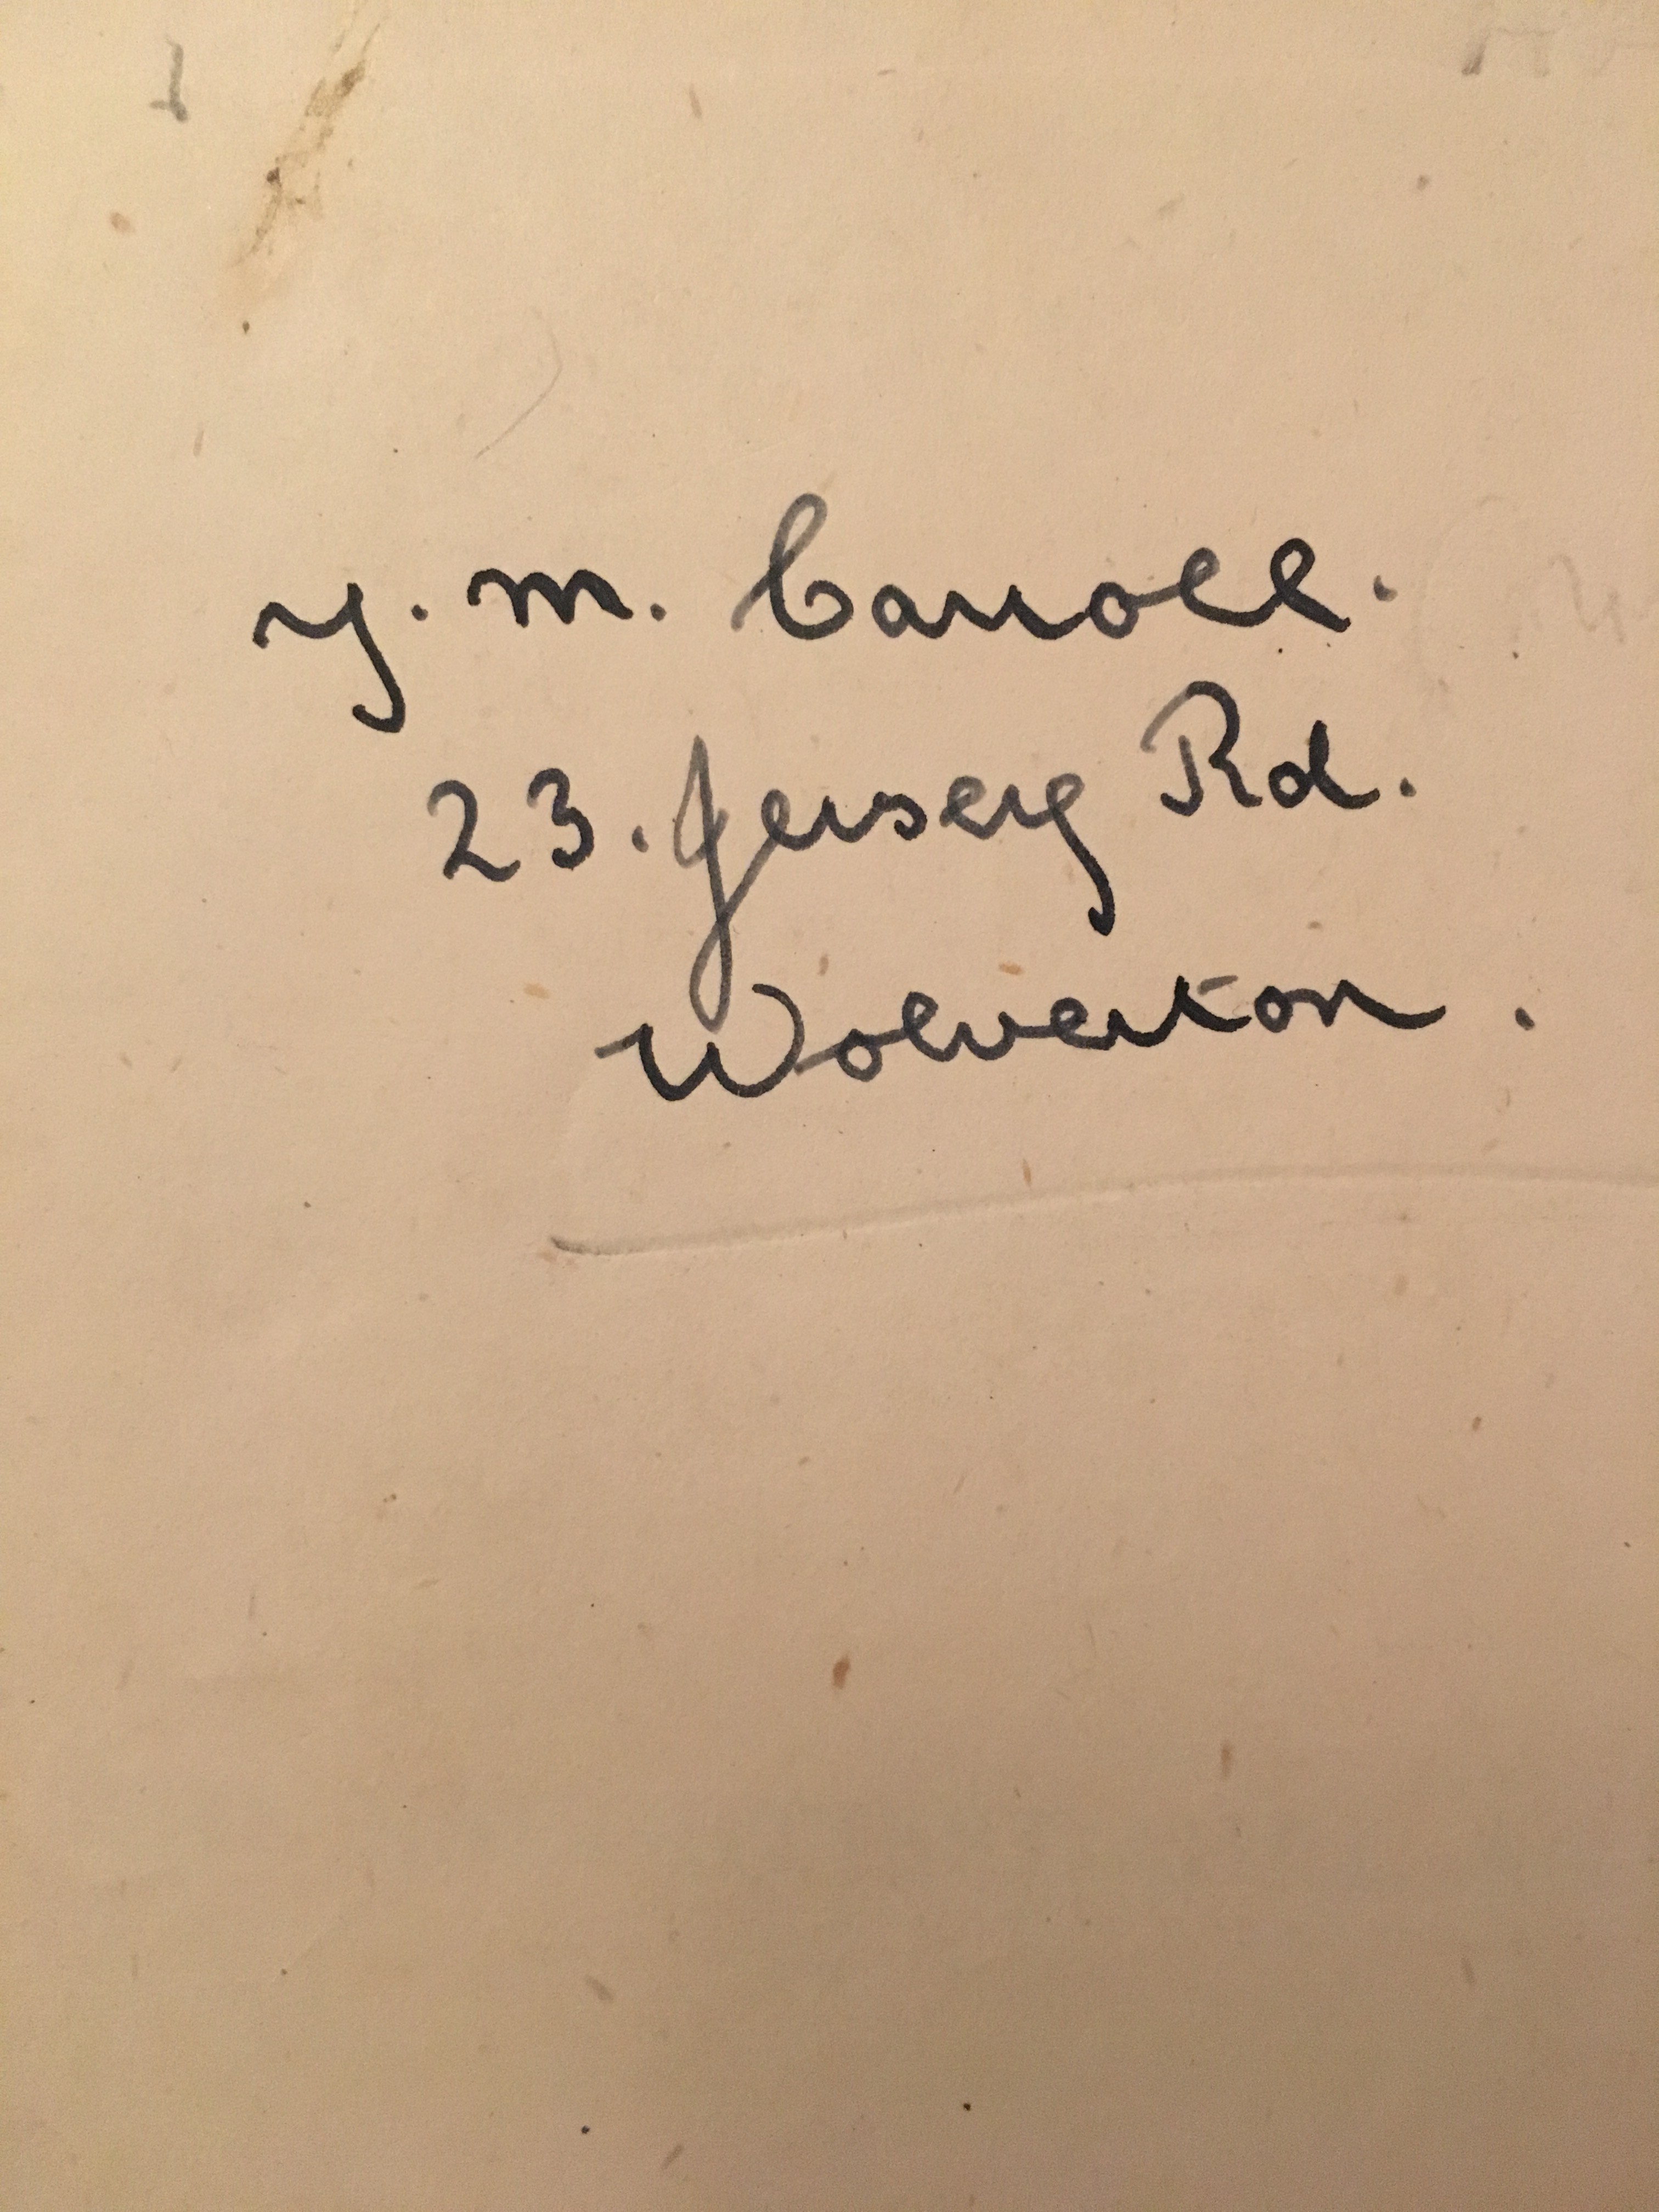 Y. M. Carroll.
23. Jersey Rd.
Wolverton.